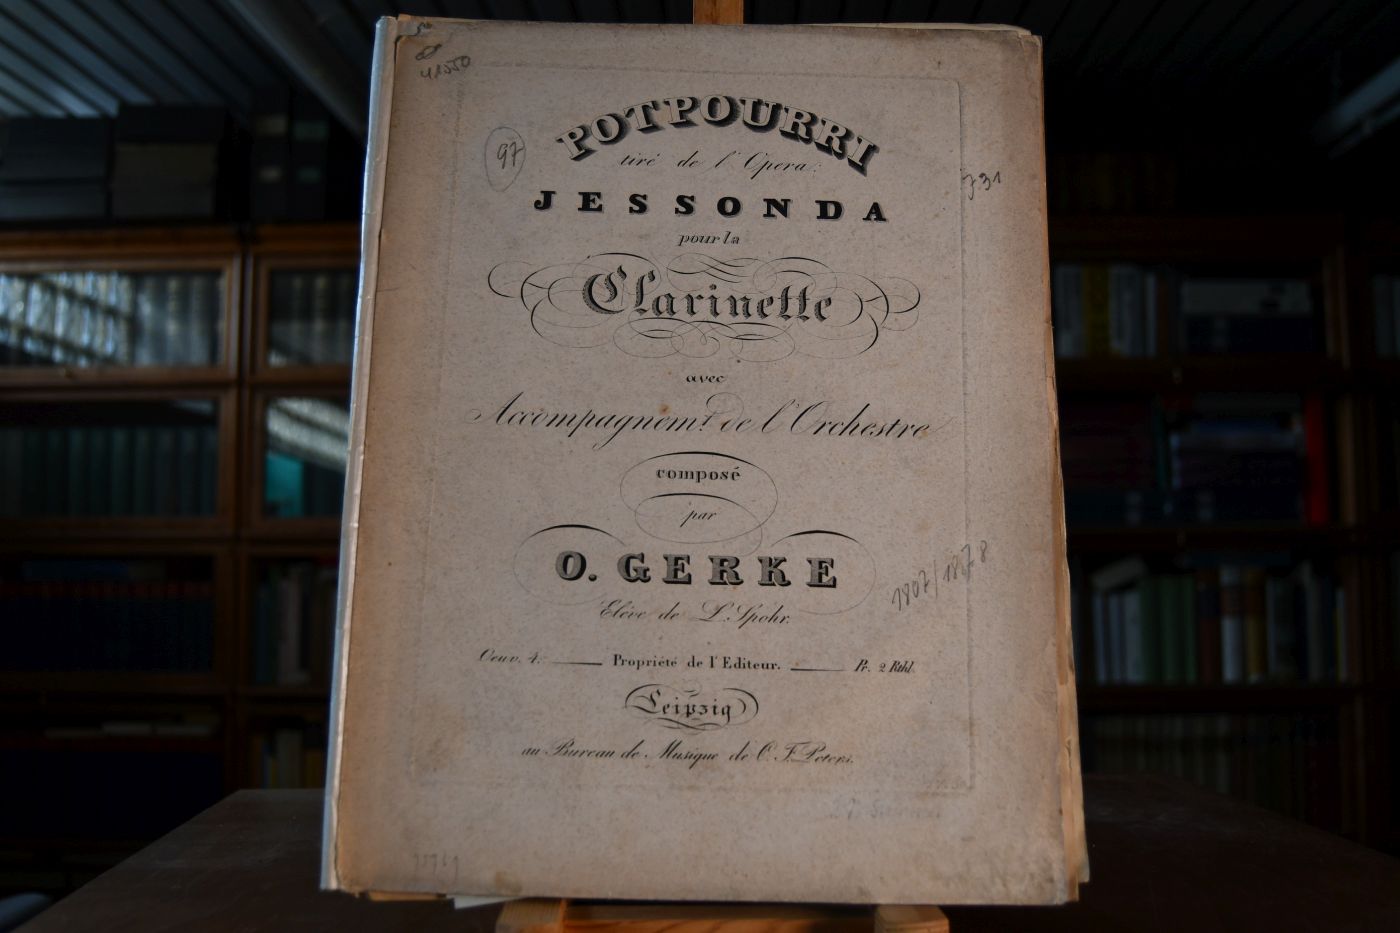 41550
POTPOURRI
97
tiré de l'Opera:
731
JESSONDA
pour la
Clarinette
avec
Accompagnemt. de l'Orchestre
composé
par
O. GERKE
1807/1878
Elève de L. Spohr.
Oeuv. 4. Propriété de l'Editeur. Pr. 2 Rthl.
Leipzig
au Bureau de Musique de C. F. Peters.